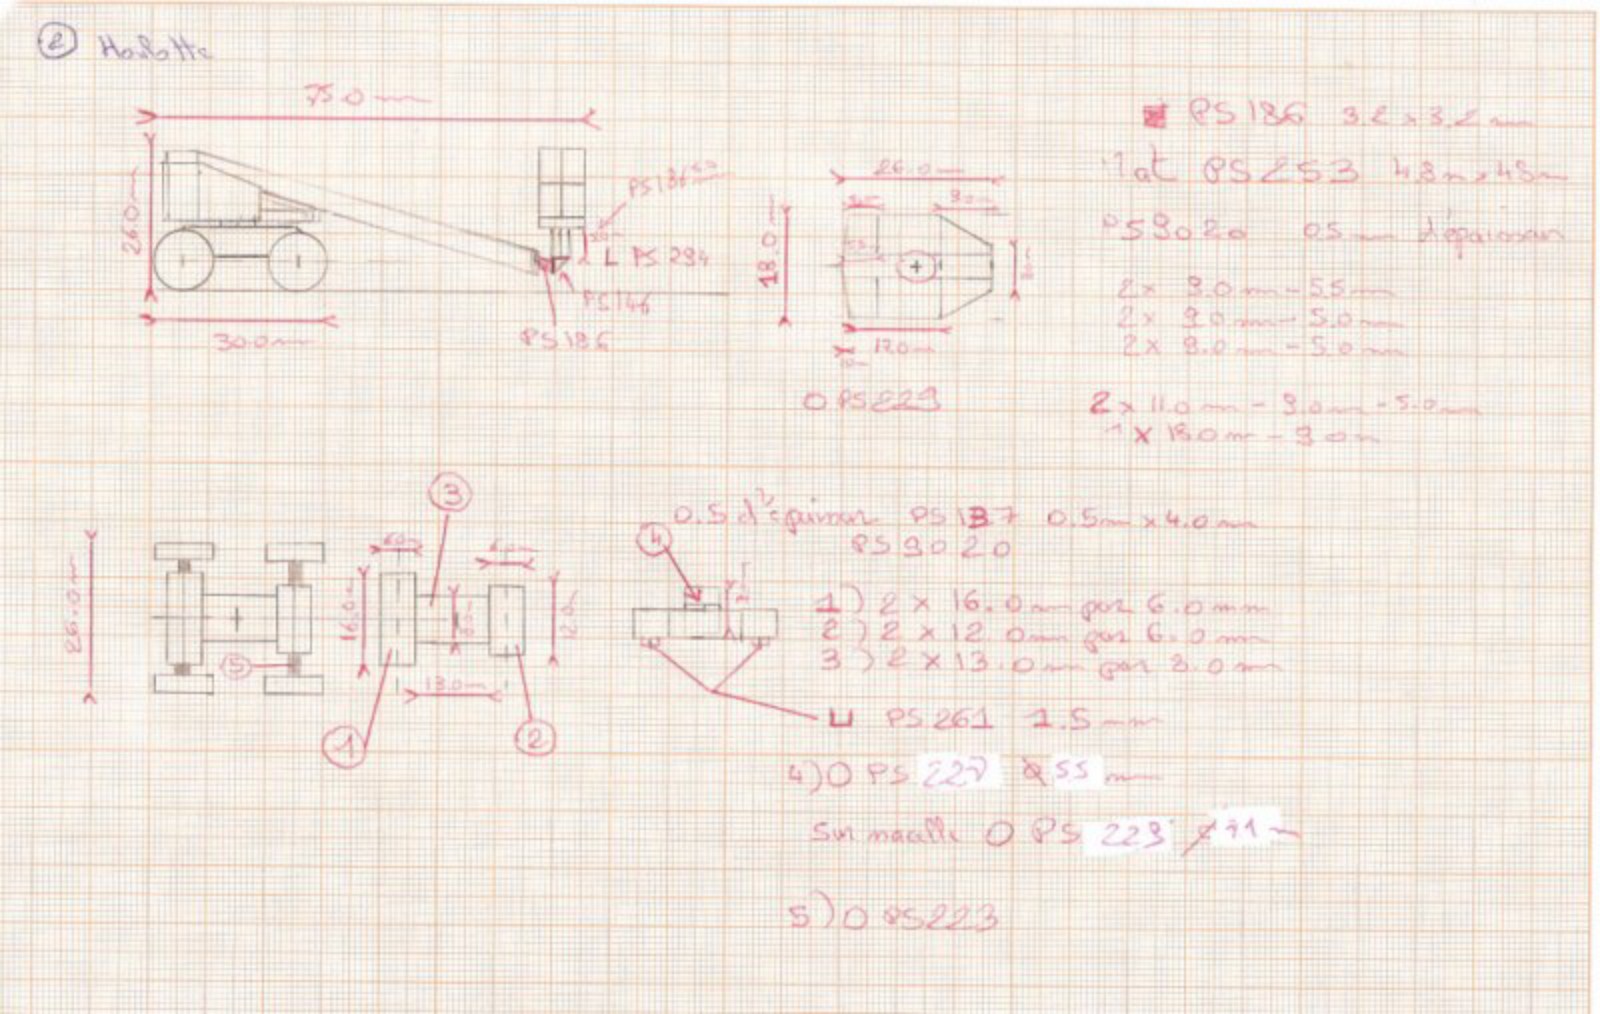 2
75.0 mm
26.0 mm
30.0 mm
PS 186
L PS 294
PS 146
PS 186
26.0 mm
18.0 mm
12.0 mm
O PS 229
PS 186 3.2 x 3.2 mm
1 at PS 253 4.8 mm x 4.8 mm
PS 9020 0.5 mm d'épaisseur
2 x 9.0 mm - 5.5 mm
2 x 9.0 mm - 5.0 mm
2 x 9.0 mm - 5.0 mm
2 x 11.0 mm - 9.0 mm - 5.0 mm
1 x 18.0 mm - 9.0 mm
26.0 mm
5
3
6.0 mm
6.0 mm
16.0 mm
12.0 mm
13.0 mm
1
2
4
0.5 d'épaisseur PS 137 0.5 mm x 4.0 mm
PS 9020
1) 2 x 16.0 mm par 6.0 mm
2) 2 x 12.0 mm par 6.0 mm
3) 2 x 13.0 mm par 8.0 mm
PS 261 1.5 mm
4) O PS 227 55 mm
Sur O PS 229 11 mm
5) O PS 223